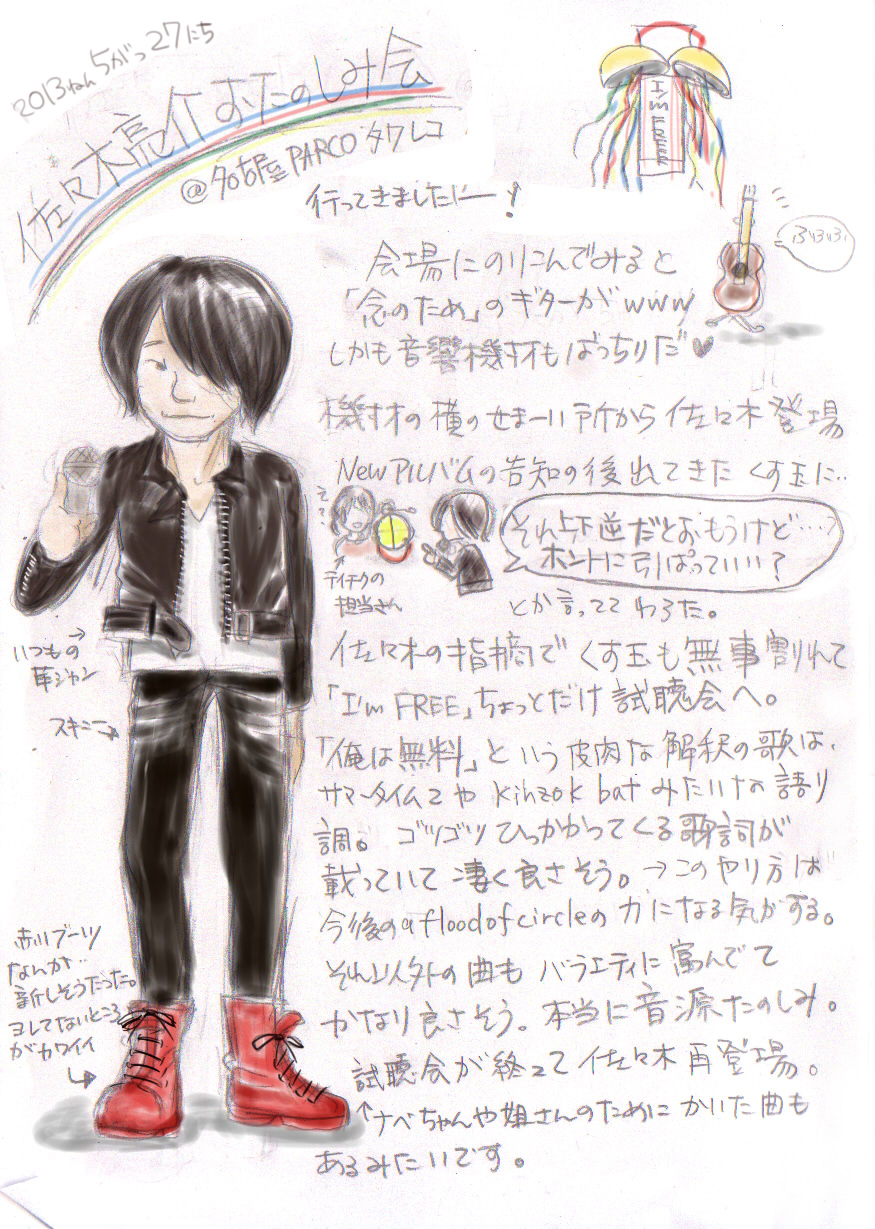 2013ねん5がつ27にち
佐々木亮介おたのしみ会
@名古屋PARCOタワレコ
行ってきましたにー!
I'M FREE
会場にのりこんでみると
「念のため」のギターがwww
しかも音響機材もばっちりだ♥
機材の横のせまーい所から佐々木登場
Newアルバムの告知の後出てきたくす玉に‥
え?
テイチクの
担当さん
それ上下逆だとおもうけど…?
ホントに引ぱっていい?
とか言っててわろた。
佐々木の指摘でくす玉も無事割れて
「I'm FREE」ちょっとだけ試聴会へ。
「俺は無料」という皮肉な解釈の歌は、
サマータイムⅡや kinzok bat みたいなの語り
調。ゴツゴツひっかかってくる歌詞が
載っていて凄く良さそう。→このやり方は
今後のa flood of circleの力になる気がする。
それ以外の曲もバラエティに富んでて
かなり良さそう。本当に音源たのしみ。
試聴会が終って佐々木再登場。
↑ナベちゃんや姐さんのためにかいた曲も
あるみたいです。
いつもの→
革ジャン
スキニー→
赤いブーツ
なんか‥
新しそうだった。
ヨレてないところ
がカワイイ